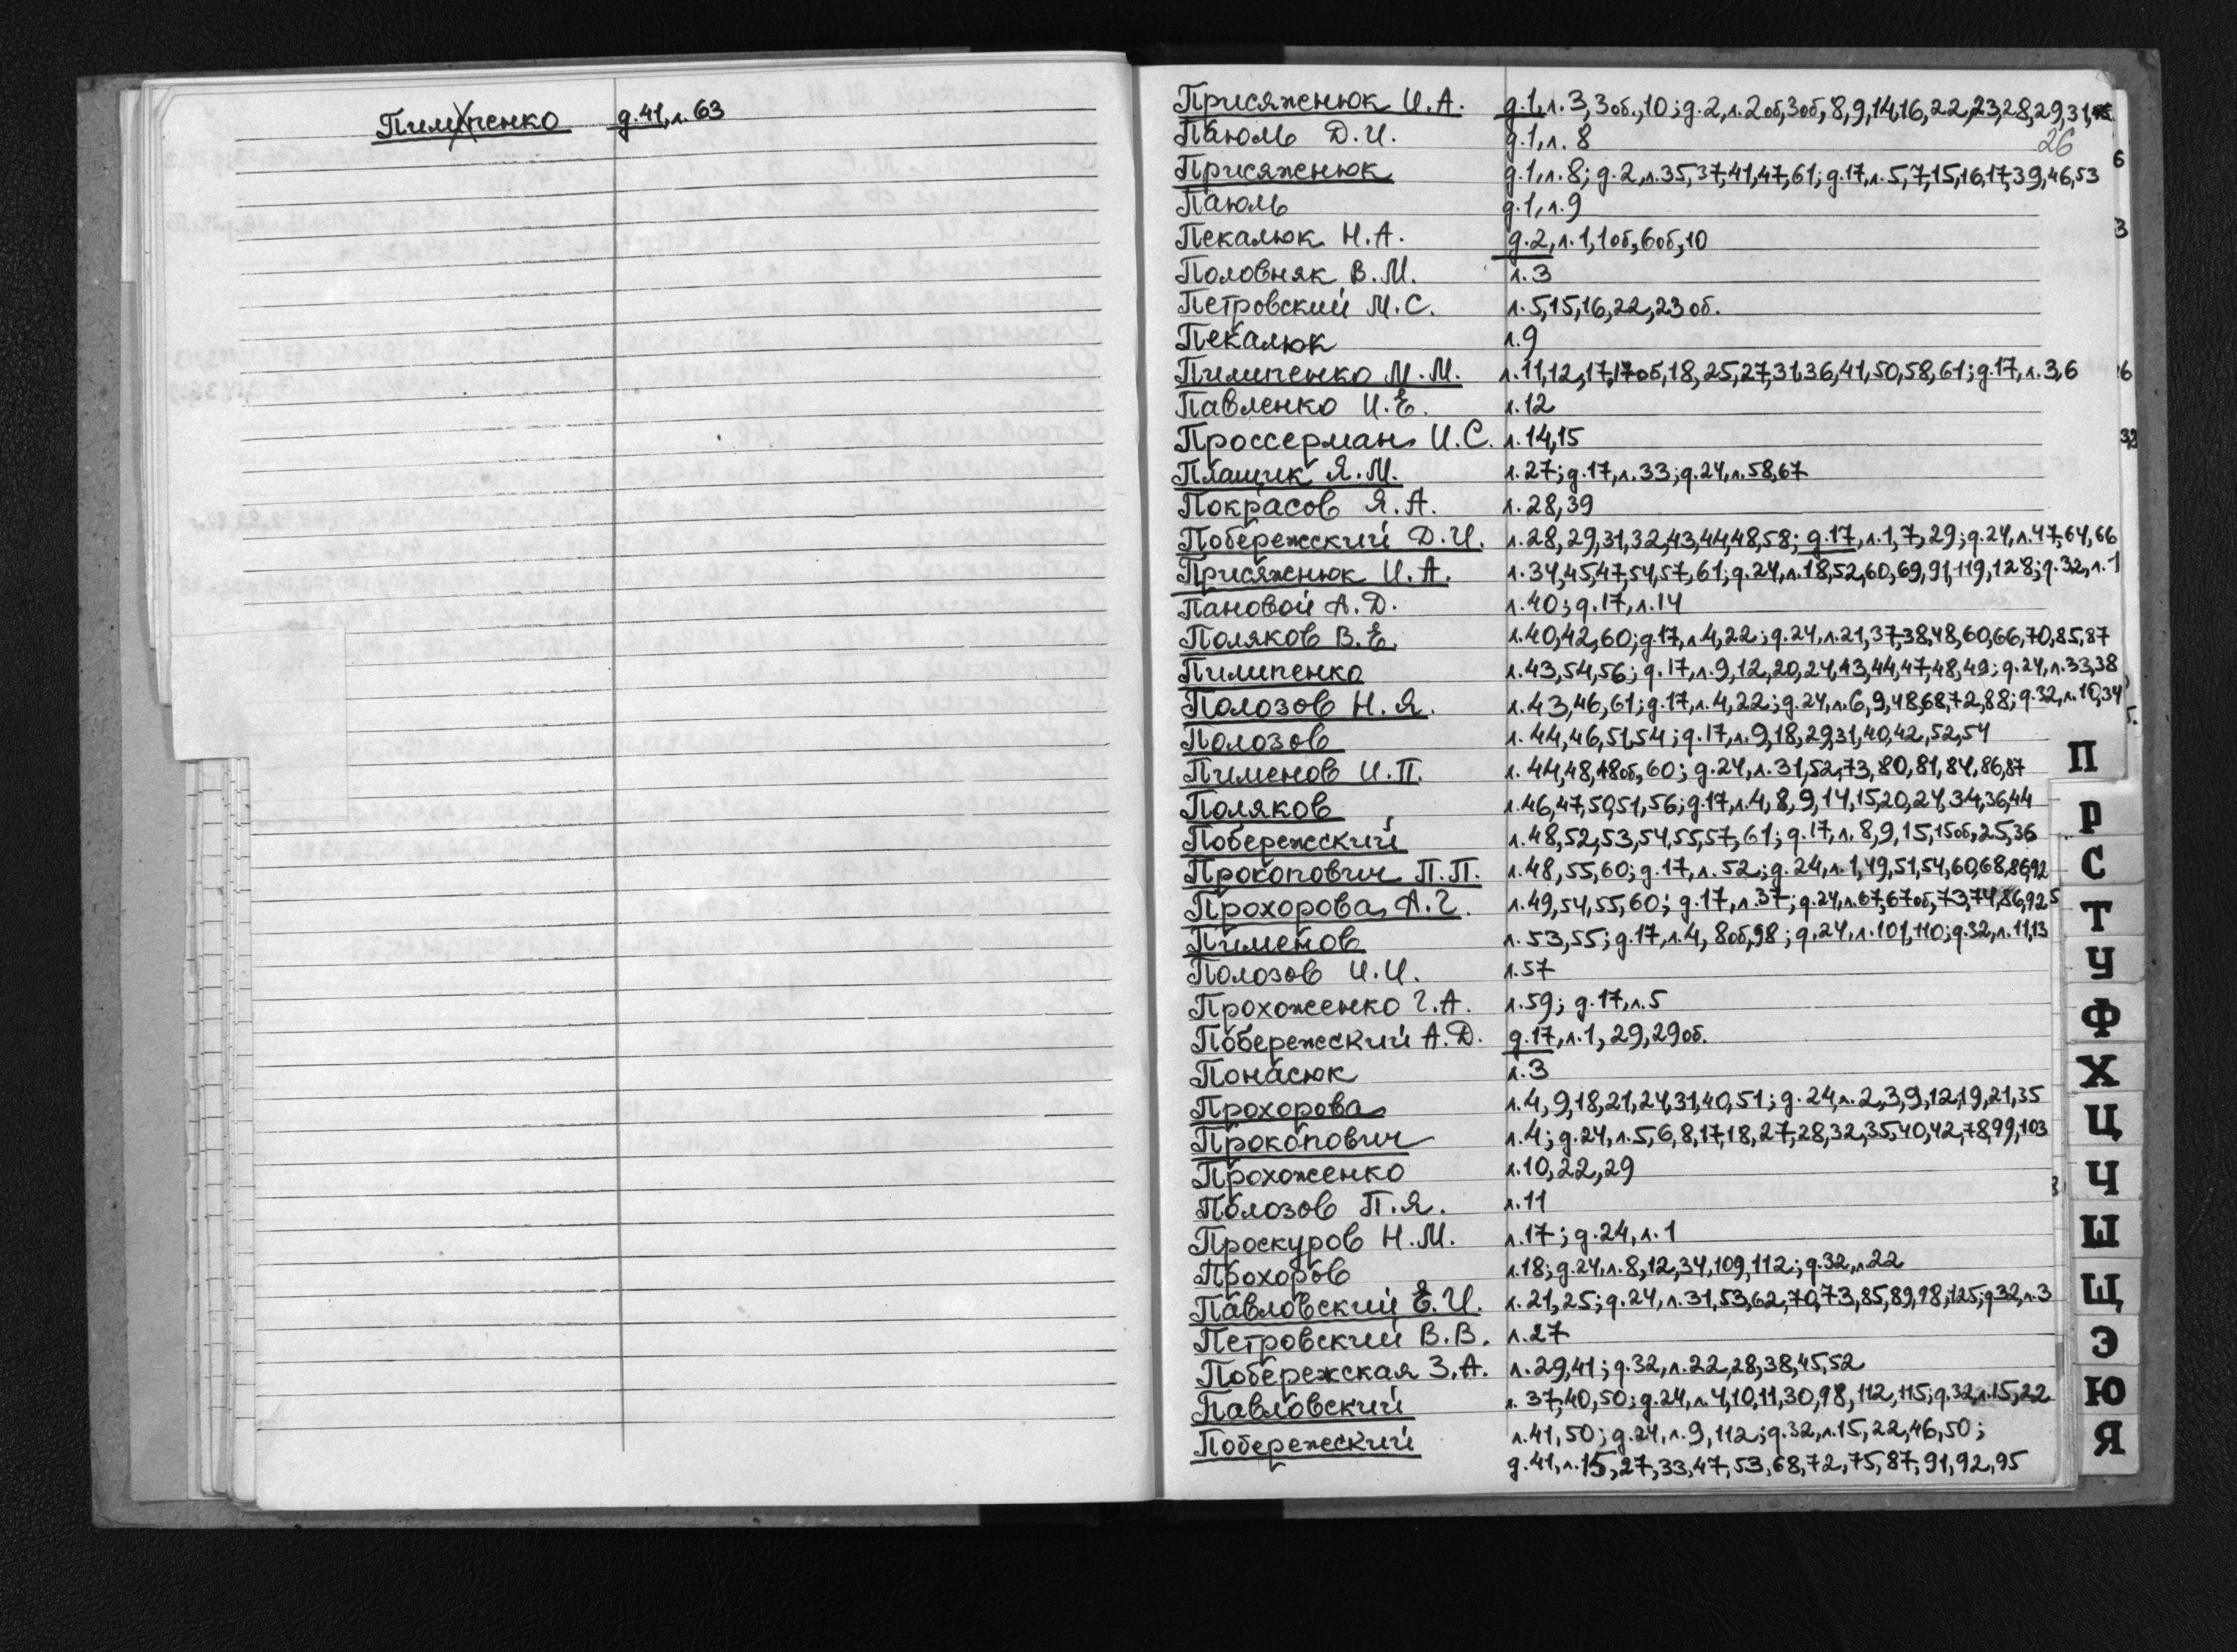 Пимипенко д.41, л.63
Присяженюк И.А. д.1, л.3, 3об., 10; д.2, л.2об, 3об, 8, 9, 14, 16, 22, 23, 28, 29, 31,
26
Паюль Д.И. д.1, л.8
Присяженюк д.1, л.8; д.2, л.35, 37, 41, 47, 61; д.17, л.5, 7, 15, 16, 17, 39, 46, 53
Паюль д.1, л.9
Пекалюк Н.А. д.2, л.1, 1об, 6об, 10
Половняк В.М. л.3
Петровский М.С. л.5, 15, 16, 22, 23об.
Пекалюк л.9
Пилипенко М.М. л.11, 12, 17, 17об, 18, 25, 27, 31, 36, 41, 50, 58, 61; д.17, л.3, 6
Павленко И.Е. л.12
Проссерман И.С. л.14, 15
Плащик Я.М. л.27; д.17, л.33; д.24, л.58, 67
Покрасов Я.А. л.28, 39
Побережский Д.И. л.28, 29, 31, 32, 43, 44, 48, 58; д.17, л.1, 7, 29; д.24, л.47, 64, 66
Присяжнюк И.А. л.34, 45, 47, 54, 57, 61; д.24, л.18, 52, 60, 69, 91, 119, 128; д.32, л.1
Пановой А.Д. л.40; д.17, л.14
Поляков В.Е. л.40, 42, 60; д.17, л.4, 22; д.24, л.21, 37, 38, 48, 60, 66, 70, 85, 87
Пилипенко л.43, 54, 56; д.17, л.9, 12, 20, 24, 43, 44, 47, 48, 49; д.24, л.33, 38
Полозов Н.Я. л.43, 46, 61; д.17, л.4, 22; д.24, л.6, 9, 48, 68, 72, 88; д.32, л.10, 34
Полозов л.44, 46, 51, 54; д.17, л.9, 18, 29, 31, 40, 42, 52, 54
Пименов И.П. л.44, 48, 48об, 60; д.24, л.31, 52, 73, 80, 81, 84, 86, 87
Поляков л.46, 47, 50, 51, 56; д.17, л.4, 8, 9, 14, 15, 20, 24, 34, 36, 44
Побережский л.48, 52, 53, 54, 55, 57, 61; д.17, л.8, 9, 15, 15об, 25, 36
Прокопович П.П. л.48, 55, 60; д.17, л.52; д.24, л.1, 49, 51, 54, 60, 68, 86, 92
Прохорова А.Г. л.49, 54, 55, 60; д.17, л.37; д.24, л.67, 67об, 73, 74, 86, 92
Пименов л.53, 55; д.17, л.4, 8об, 98; д.24, л.101, 110; д.32, л.11, 13
Полозов И.И. л.57
Прохоженко Г.А. л.59; д.17, л.5
Побережский А.Д. д.17, л.1, 29, 29об.
Понасюк л.3
Прохорова л.4, 9, 18, 21, 24, 31, 40, 51; д.24, л.2, 3, 9, 12, 19, 21, 35
Прокопович л.4; д.24, л.5, 6, 8, 17, 18, 27, 28, 32, 35, 40, 42, 78, 99, 103
Прохоженко л.10, 22, 29
Полозов П.Я. л.11
Проскуров Н.М. л.17; д.24, л.1
Прохоров л.18; д.24, л.8, 12, 34, 109, 112; д.32, л.22
Павловский Е.И. л.21, 25; д.24, л.31, 53, 62, 70, 73, 85, 89, 98, 125; д.32, л.3
Петровский В.В. л.27
Побережская З.А. л.29, 41; д.32, л.22, 28, 38, 45, 52
Павловский л.37, 40, 50; д.24, л.4, 10, 11, 30, 98, 112, 115; д.32, л.15, 22
Побережский л.41, 50; д.24, л.9, 112; д.32, л.15, 22, 46, 50;
д.41, л.15, 27, 33, 47, 53, 68, 72, 75, 87, 91, 92, 95
П
Р
С
Т
У
Ф
Х
Ц
Ч
Ш
Щ
Э
Ю
Я